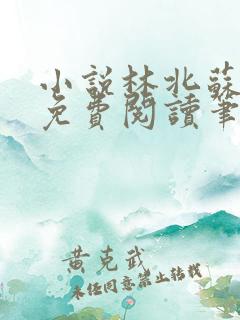 小說林北蘇
免費閱讀筆
黃克武
未經同意禁止轉載